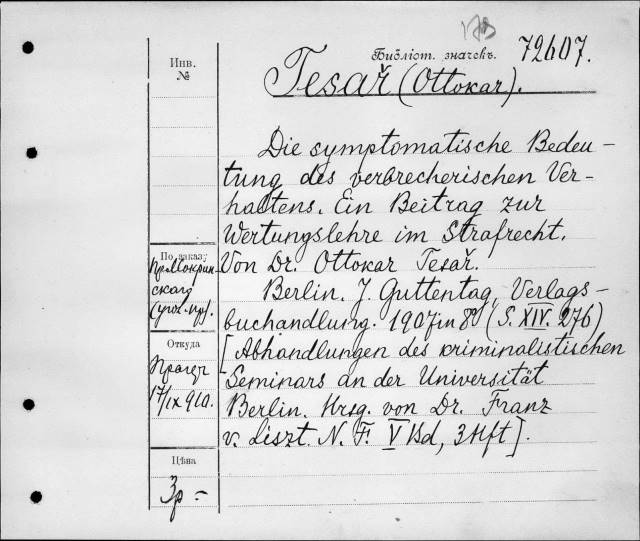 Библіот. значекъ. 72607.
Инв.
№
Tesař (Ottokar).
Die symptomatische Bedeu-
tung des verbrecherischen Ver-
haltens. Ein Beitrag zur
Wertungslehre im Strafrecht.
Von Dr. Ottokar Tesař.
Berlin. J. Guttentag, Verlags-
buchhandlung. 1907 in 8º (S. XIV. 276)
[Abhandlungen des kriminalistischen
Seminars an der Universität
Berlin. Hrsg. von Dr. Franz
v. Liszt. N. F. V Bd, 3 Hft].
По заказу
пр. Мокрин-
скаго
(угол. пр).
Откуда
Прагеръ
17/IX 910.
Цѣна
3р =